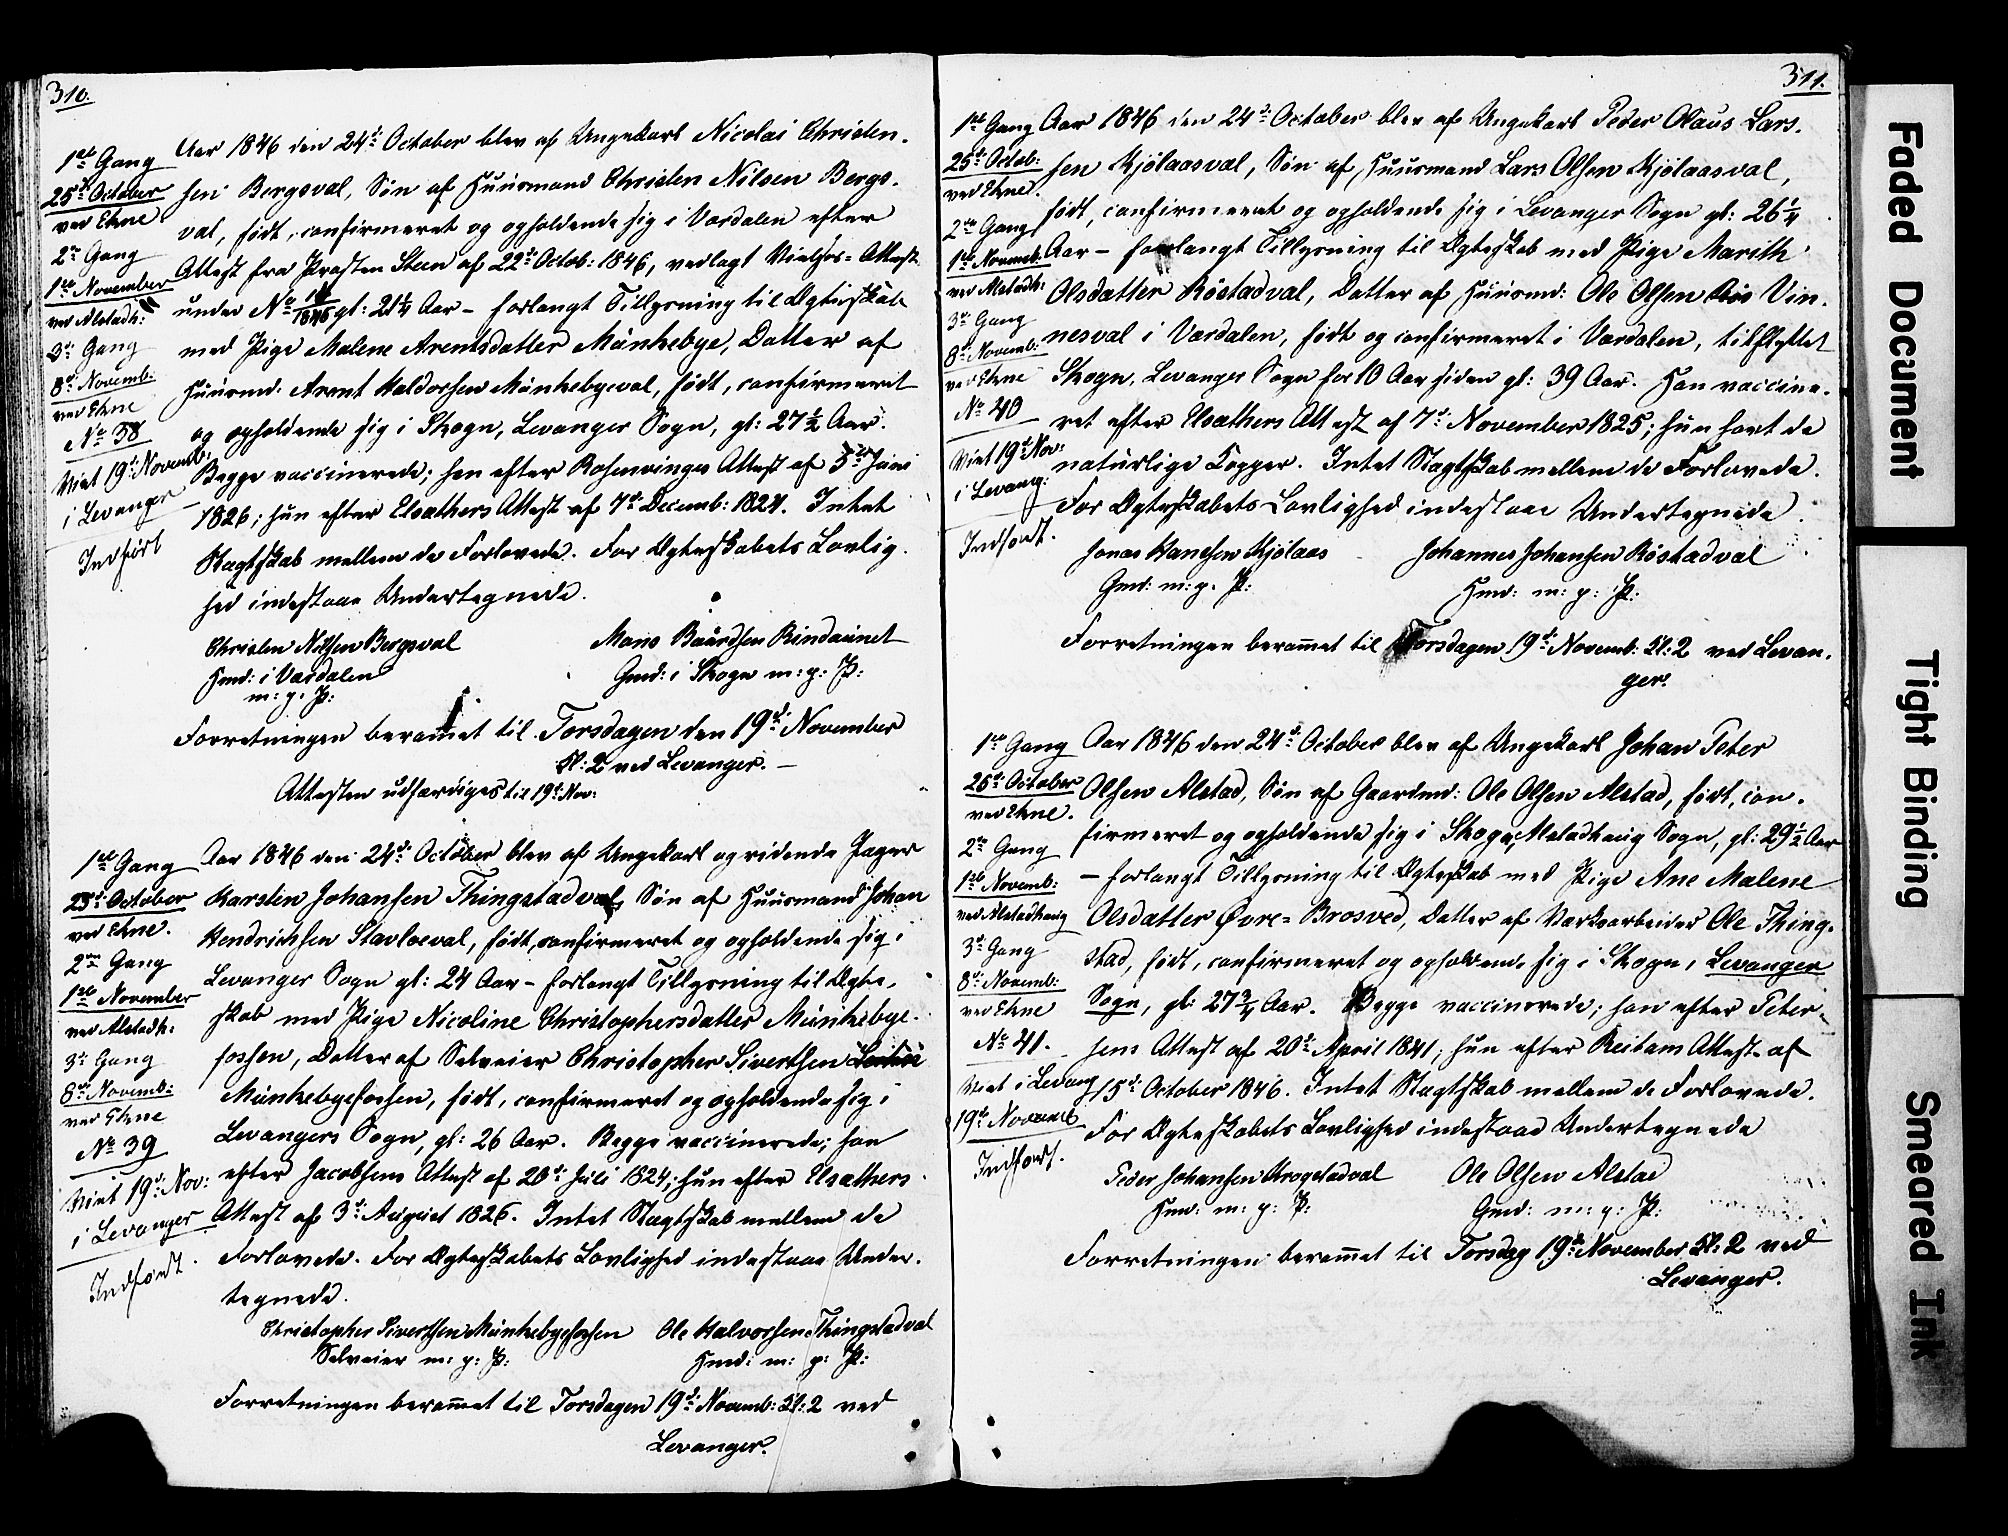 310.
1ste Gang
25de October
ved Ekne
2den Gang
1ste November
ved Alstadh:
3die Gang
8de Novemb:
ved Ekne
No 38
Viet 19de Novemb:
i Levanger
Indført
Aar 1846 den 24de October blev af Ungekarl Nicolai Christen-
sen Bergsval, Søn af Huusmand Christen Nilsen Bergs-
val, født, confirmeret og opholdende sig i Værdalen efter
Attest fra Præsten Steen af 22de Octob: 1846, vedlagt Vielses-Attest
under No 1846 gl: 21¼ Aar – forlangt Tillysning til Ægteskab
med Pige Malene Arentsdatter Munkebye, Datter af
Huusmd: Arent Haldorsen Munkebyeval, født, confirmeret
og opholdende sig i Skogn, Levanger Sogn, gl: 27½ Aar.
Begge vaccinerede; han efter Rosenvinges Attest af 5te Juni
1826; hun efter Elsathers Attest af 7de Decemb: 1824. Intet
Slægtskab mellem de Forlovede. For Ægteskabets Lovlig-
hed indestaae Undertegnede.
Christen Nilsen Bergsval
Hmd: i Værdalen
m: p: P:
Mons Baardsen Rindaunet
Gmd: i Skogn m: p: P:
Forretningen berammet til Torsdagen den 19de November
Kl: 2 ved Levanger. –
Attesten udfærdiges til 19de Nov:
1ste Gang
25de October
ved Ekne.
2den Gang
1ste November
ved Alstadh:
3die Gang
8de Novemb:
ved Ekne
No 39
Viet 19de Nov:
i Levanger
Indført.
Aar 1846 den 24de October blev af Ungekarl og ridende Jæger
Karsten Johansen Thingstadval, Søn af Huusmand Johan
Hendrichsen Stavloeval, født, confirmeret og opholdende sig i
Levanger Sogn gl: 24 Aar – forlangt Tillysning til Ægte-
skab med Pige Nicoline Christophersdatter Munkebye-
fossen, Datter af Selveier Christopher Sivertsen
Munkebyefossen, født, confirmeret og opholdende sig i
Levangers Sogn, gl: 26 Aar. Begge vaccinerede; han
efter Jacobsens Attest af 20de Juli 1824; hun efter Elsathers
Attest af 3die August 1826. Intet Slægtskab mellem de
Forlovede. For Ægteskabets Lovlighed indestaae Under-
tegnede.
Christopher Sivertsen Munkebyefossen
Selveier m: p: P:
Ole Halvorsen Thingstadval
Hmd: m: p: P:
Forretningen berammet til Torsdagen 19de Novemb: Kl: 2 ved
Levanger.
311.
1ste Gang
25de Octob:
ved Ekne.
2den Gang
1ste Novemb:
ved Alstadh:
3die Gang
8de Novemb:
ved Ekne
No 40
Viet 19de Nov:
i Levang:
Indført.
Aar 1846 den 24de October blev af Ungekarl Peder Olaus Lars-
sen Kjølaasval, Søn af Huusmand Lars Olsen Kjølaasval,
født, confirmeret og opholdende sig i Levanger Sogn gl: 26¼
Aar – forlangt Tillysning til Ægteskab med Pige Marith
Olsdatter Røstadval, Datter af Huusmd: Ole Olsen Vin-
nesval i Værdalen, født og confirmeret i Værdalen, tilflyttet
Skogn, Levanger Sogn for 10 Aar siden gl: 39 Aar. Han vaccine-
ret efter Elsathers Attest af 7de November 1825; hun havt de
naturlige Kopper. Intet Slægtskab mellem de Forlovede.
For Ægteskabets Lovlighed indestaae Undertegnede
Jonas Hansen Kjølaas
Gmd: m: p. P:
Johannes Johansen Røstadval
Hmd: m: p: P:
Forretningen berammet til Torsdagen 19de Novemb: Kl: 2 ved Levan-
ger.
1ste Gang
25de October
ved Ekne.
2den Gang
1ste Novemb:
ved Alstadhaug
3die Gang
8de Novemb:
ved Ekne
No 41.
Viet i Levang
19de Novemb
Indført.
Aar 1846 den 24de October blev af Ungekarl Johan Peter
Olsen Alstad, Søn af Gaardmd: Ole Olsen Alstad, født, con-
firmeret og opholdende sig i Skogn, Alstadhaug Sogn, gl: 29½ Aar
– forlangt Tillysning til Ægteskab med Pige Ane Malene
Olsdatter Øvre-Brosved, Datter af Værksarbeider Ole Thing-
stad, født, confirmeret og opholdende sig i Skogn, Levanger
Sogn, gl: 27¾ Aar. Begge vaccinerede; han efter Peter-
sens Attest af 20de April 1841; hun efter Reitans Attest af
15de October 1846. Intet Slægtskab mellem de Forlovede.
For Ægteskabets Lovlighed indestaae Undertegnede
Peder Johansen Krogstadval
Hmd: m: p: P:
Ole Olsen Alstad
Gmd: m: p: P:
Forretningen berammet til Torsdag 19de November Kl: 2 ved
Levanger.
Faded Document
Tight Binding
Smeared Ink